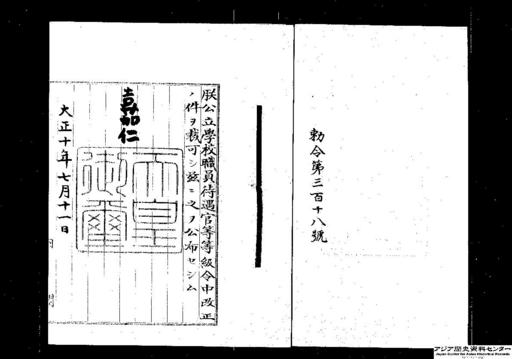 勅令第三百十八號
朕公立學校職員待遇官等等級令中改正
ノ件ヲ裁可シ茲ニ之ヲ公布セシム
嘉仁
天皇御璽
大正十年七月十一日
アジア歴史資料センター
Japan Center for Asian Historical Records